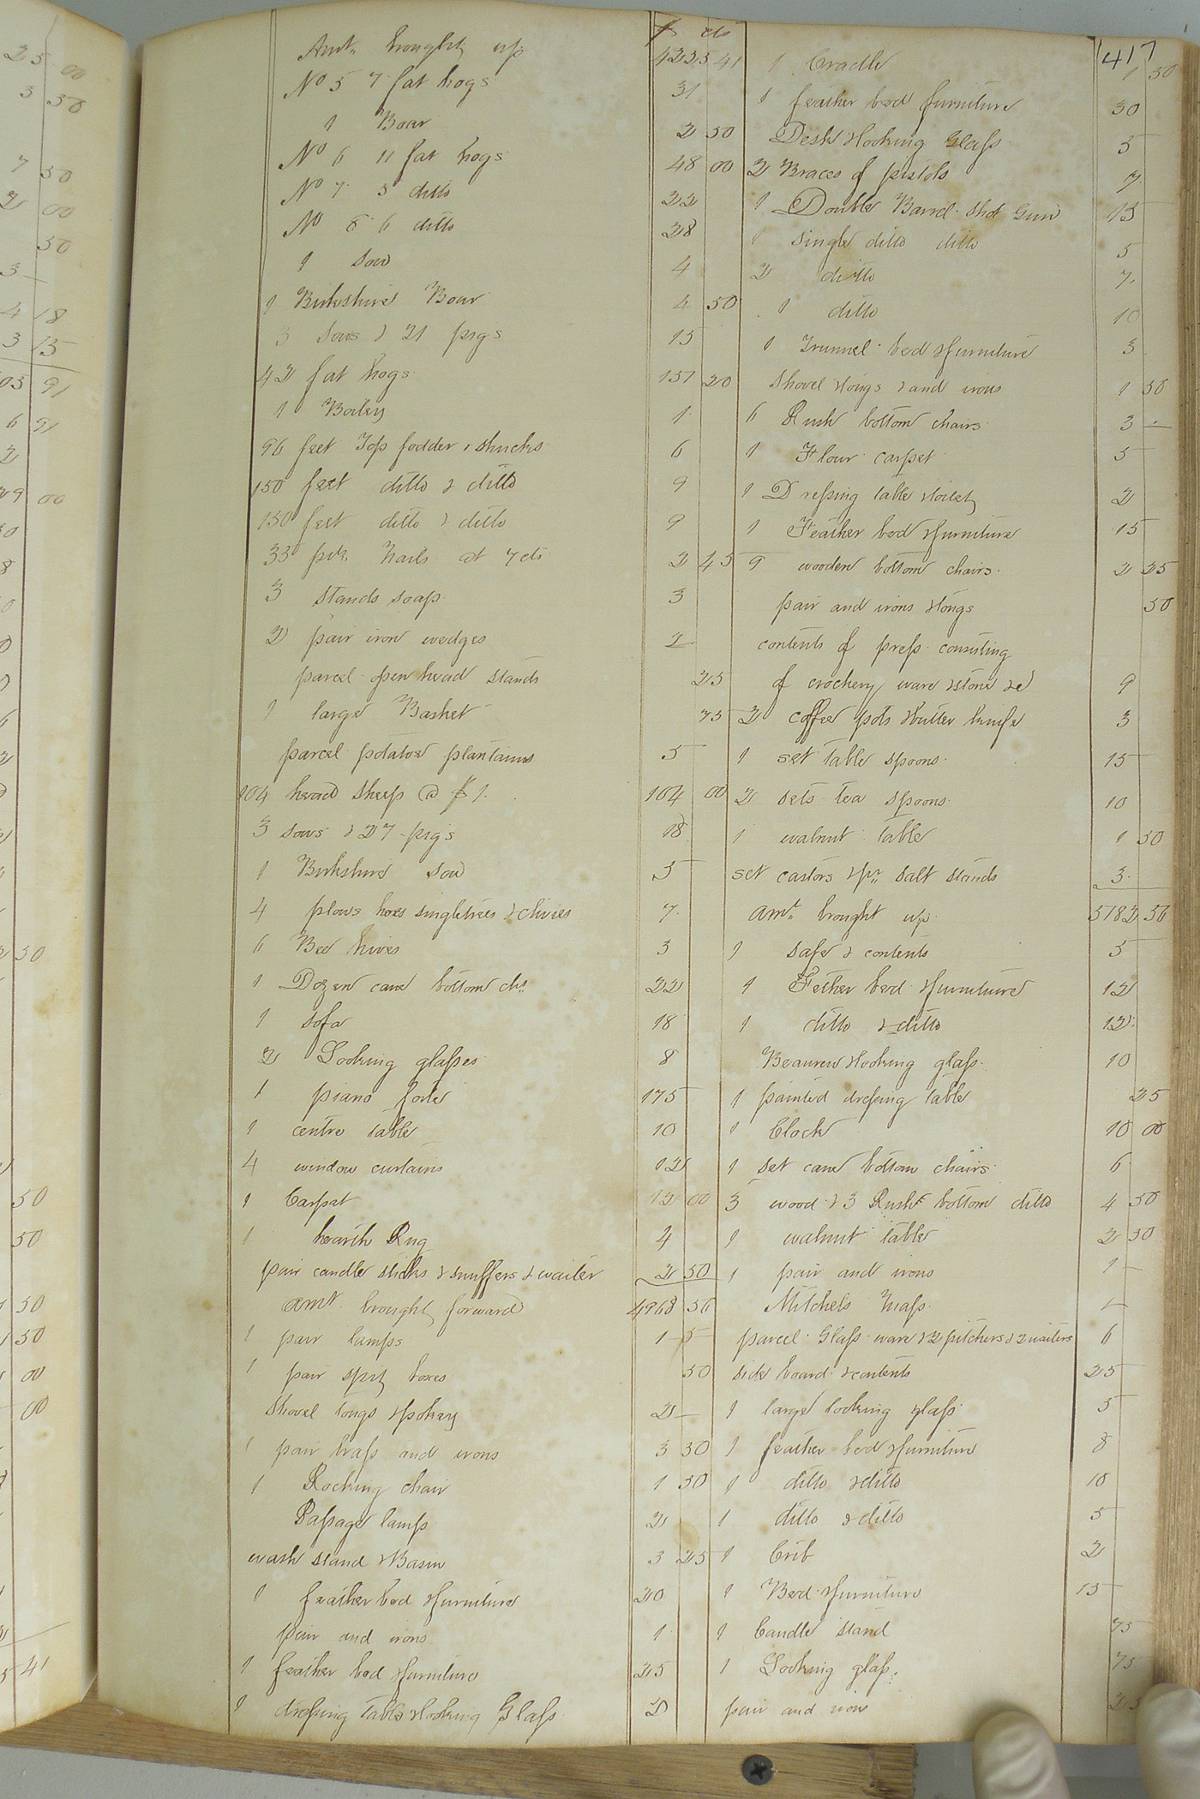 417
$ cts
Amt. brought up 4225 41
No 5 7 fat hogs 31
1 Boar 2 50
No 6 11 fat hogs 48 00
No 7 5 ditto 22
No 8 6 ditto 28
1 Sow 4
1 Birkshire Boar 4 50
3 Sows & 21 pigs 15
42 fat hogs 157 20
1 1
96 feet Top fodder & shucks 6
150 feet ditto & ditto 9
150 feet ditto & ditto 9
35 Nails at 7 cts 2 45
3 stands soap 3
2 pair iron wedges 2
parcel open head stands 25
1 large Basket 75
parcel potatoe plantains 5
104 head sheep @ $1. 104 00
3 sows & 27 pigs 18
1 Birkshire Sow 5
4 plows hoes singletrees & clivies 7
6 Bee hives 3
1 Dozen cane bottom chs 22
1 sofa 18
2 Looking glasses 8
1 piano forte 175
1 centre table 10
4 window curtains 12
1 Carpet 15 00
1 hearth Rug 4
pair candle sticks & snuffers & waiter 2 50
amt. brought forward 4968 56
1 pair lamps 1 5
1 pair spit boxes 50
Shovel tongs & pokery 2
1 pair brass and irons 3 50
1 Rocking chair 1 50
Passage lamp 2
wash stand & Basin 3 25
1 feather bed & furniture 20
pair and irons 1
1 feather bed & furniture 25
1 dressing table & looking Glass 2
1 Cradle 1 50
1 feather bed & furniture 30
Desk & looking Glass 5
2 Braces of pistols 7
1 Double Barrel Shot Gun 15
1 single ditto ditto 5
2 ditto 7
1 ditto 10
1 Trunnel bed & furniture 3
Shovel & tongs & and irons 1 50
6 Rush bottom chairs 3
1 Flour carpet 5
1 Dressing table & toilet 2
1 Feather bed & furniture 15
9 wooden bottom chairs 2 25
pair and irons & tongs 50
contents of press consisting
of crockery ware & stone &c 9
2 coffee pots & butter knife 3
1 set table spoons 15
2 sets tea spoons 10
1 walnut table 1 50
set castors & pr. salt stands 3
amt. brought up 5182 56
1 safe & contents 5
1 Fether bed & furniture 12
1 ditto & ditto 12
Beaureu & looking glass 10
1 painted dressing table 25
1 Clock 10 00
1 set cane bottom chairs 6
3 wood & 3 Rush bottom ditto 4 50
1 walnut table 2 50
1 pair and irons 1
Mitchels Maps
parcel Glass ware & 2 pitchers & 2 waiters 6
side board & contents 25
1 large looking glass 5
1 feather bed & furniture 8
1 ditto & ditto 10
1 ditto & ditto 5
1 Crib 2
1 Bed & furniture 15
1 Candle stand 75
1 Looking glass 75
pair and irons 25